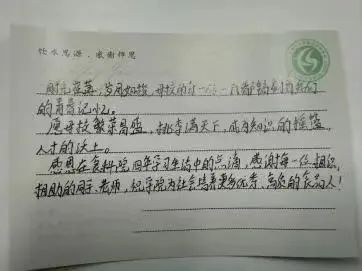 饮水思源，感谢师恩
时光荏苒，岁月如梭，母校的每一位一
的青春记忆。
愿母校繁荣昌盛，桃李满天下，成为知识的摇篮，
人才的沃土。
感恩在食科院四年学习生活中的点滴，感谢每一位相识、
相助的同学、老师，祝学院为社会培养更多优秀、高质的食品人！